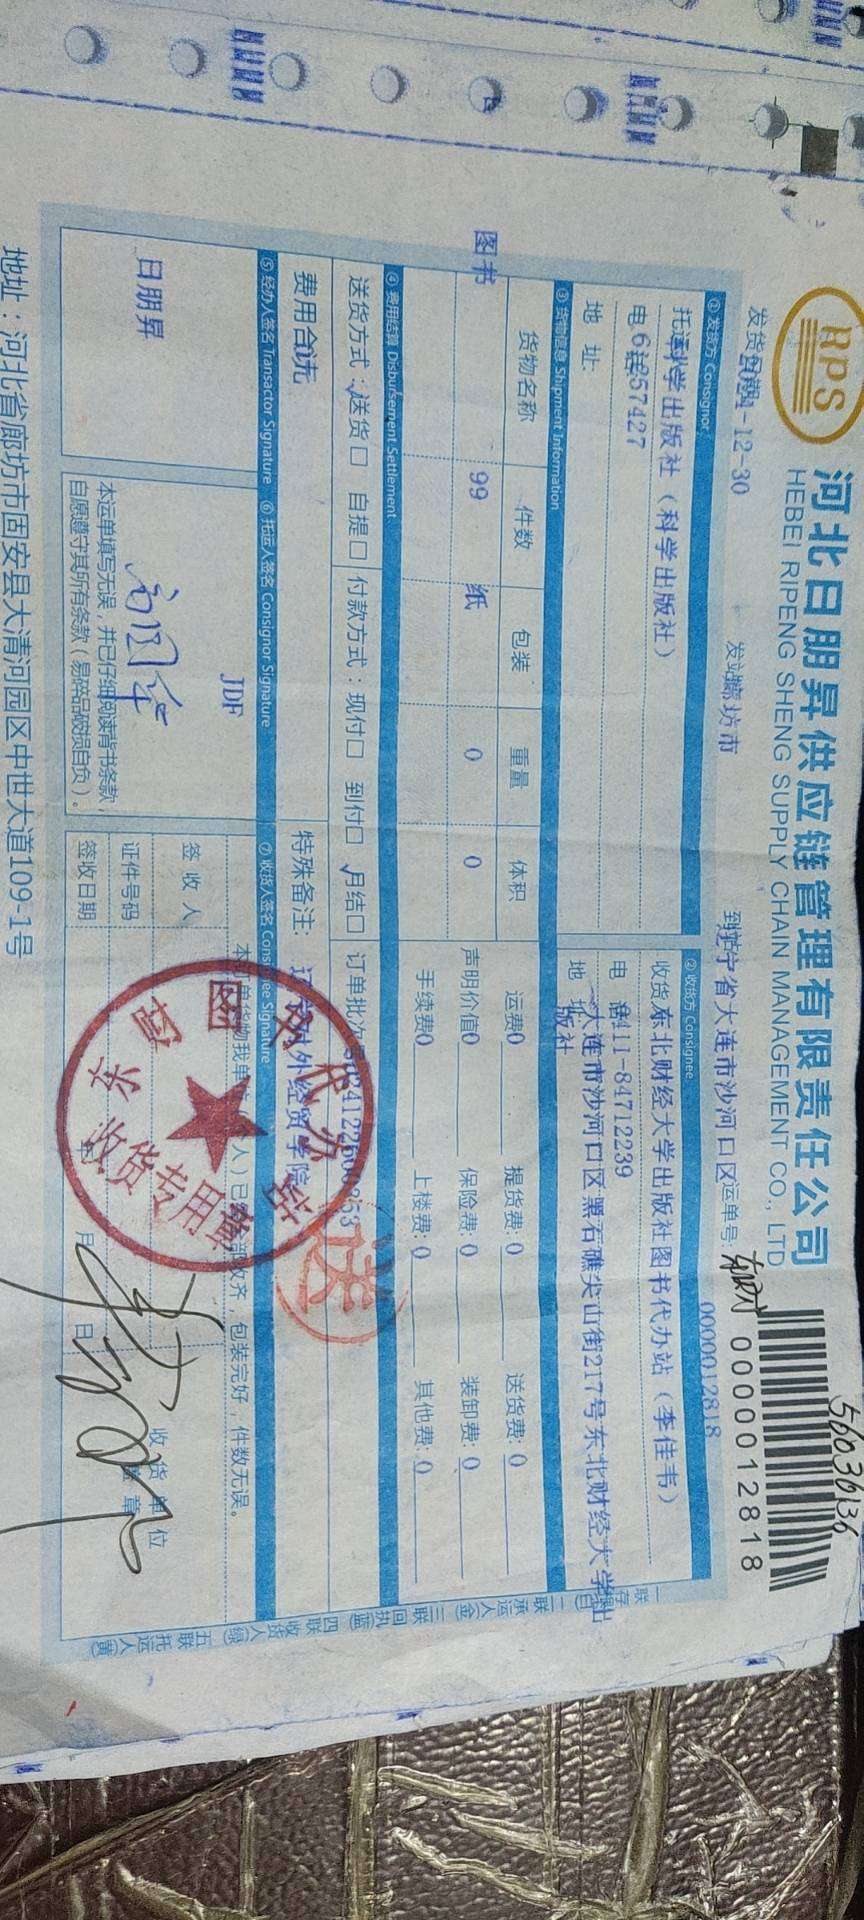 RPS
河北日朋昇供应链管理有限责任公司
HEBEI RIPENG SHENG SUPPLY CHAIN MANAGEMENT CO., LTD
56030136
0000012818
发货日期 2024-12-30
发站 廊坊市
到站 辽宁省大连市沙河口区
运单号:
0000012818
① 发货方 Consignor
② 收货方 Consignee
托运 科学出版社（科学出版社）
收货 东北财经大学出版社图书代办站（李佳韦）
电话
电话 0411-84712239
地 址:
地 址 大连市沙河口区黑石礁尖山街217号东北财经大学出版社
③ 货物信息 Shipment Information
货物名称 件数 包装 重量 体积
运费0 提货费: 0 送货费: 0
图书 99 纸 0 0
声明价值0 保险费: 0 装卸费: 0
手续费0 上楼费: 0 其他费: 0
④ 费用结算 Disbursement Settlement
送货方式: √送货□ 自提□ 付款方式: 现付□ 到付□ √月结□ 订单批次
费用合计
特殊备注: 对外经贸学院
⑤ 经办人签名 Transactor Signature
⑥ 托运人签名 Consignor Signature
⑦ 收货人签名 Consignee Signature
日朋昇
JDF
本运单填写无误，并已仔细阅读背书条款，
自愿遵守其所有条款（易碎品破损自负）。
包装完好，件数无误。
签 收 人
证件号码
签收日期
年 月 日
收 货 单 位
签 章
收货专用章
送
一联 存根(白)
二联 承运人(金)
三联 回执(蓝)
四联 收货人(绿)
五联 托运人(黄)
地址：河北省廊坊市固安县大清河园区中世大道109-1号